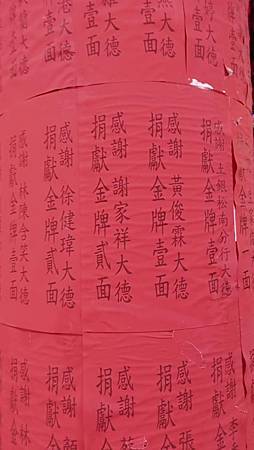 大德
壹面
大德
壹面
大德
壹面
大德
面
感謝 土銀松南分行大德
捐獻金牌壹面
感謝 黃俊霖大德
捐獻金牌壹面
感謝 謝家祥大德
捐獻金牌貳面
感謝 徐健瑋大德
捐獻金牌貳面
感謝 林陳含笑大德
捐獻金牌壹面
感謝 李
捐獻金
感謝 張
捐獻金
感謝
捐獻
感謝
捐獻金
感謝 林
捐獻金